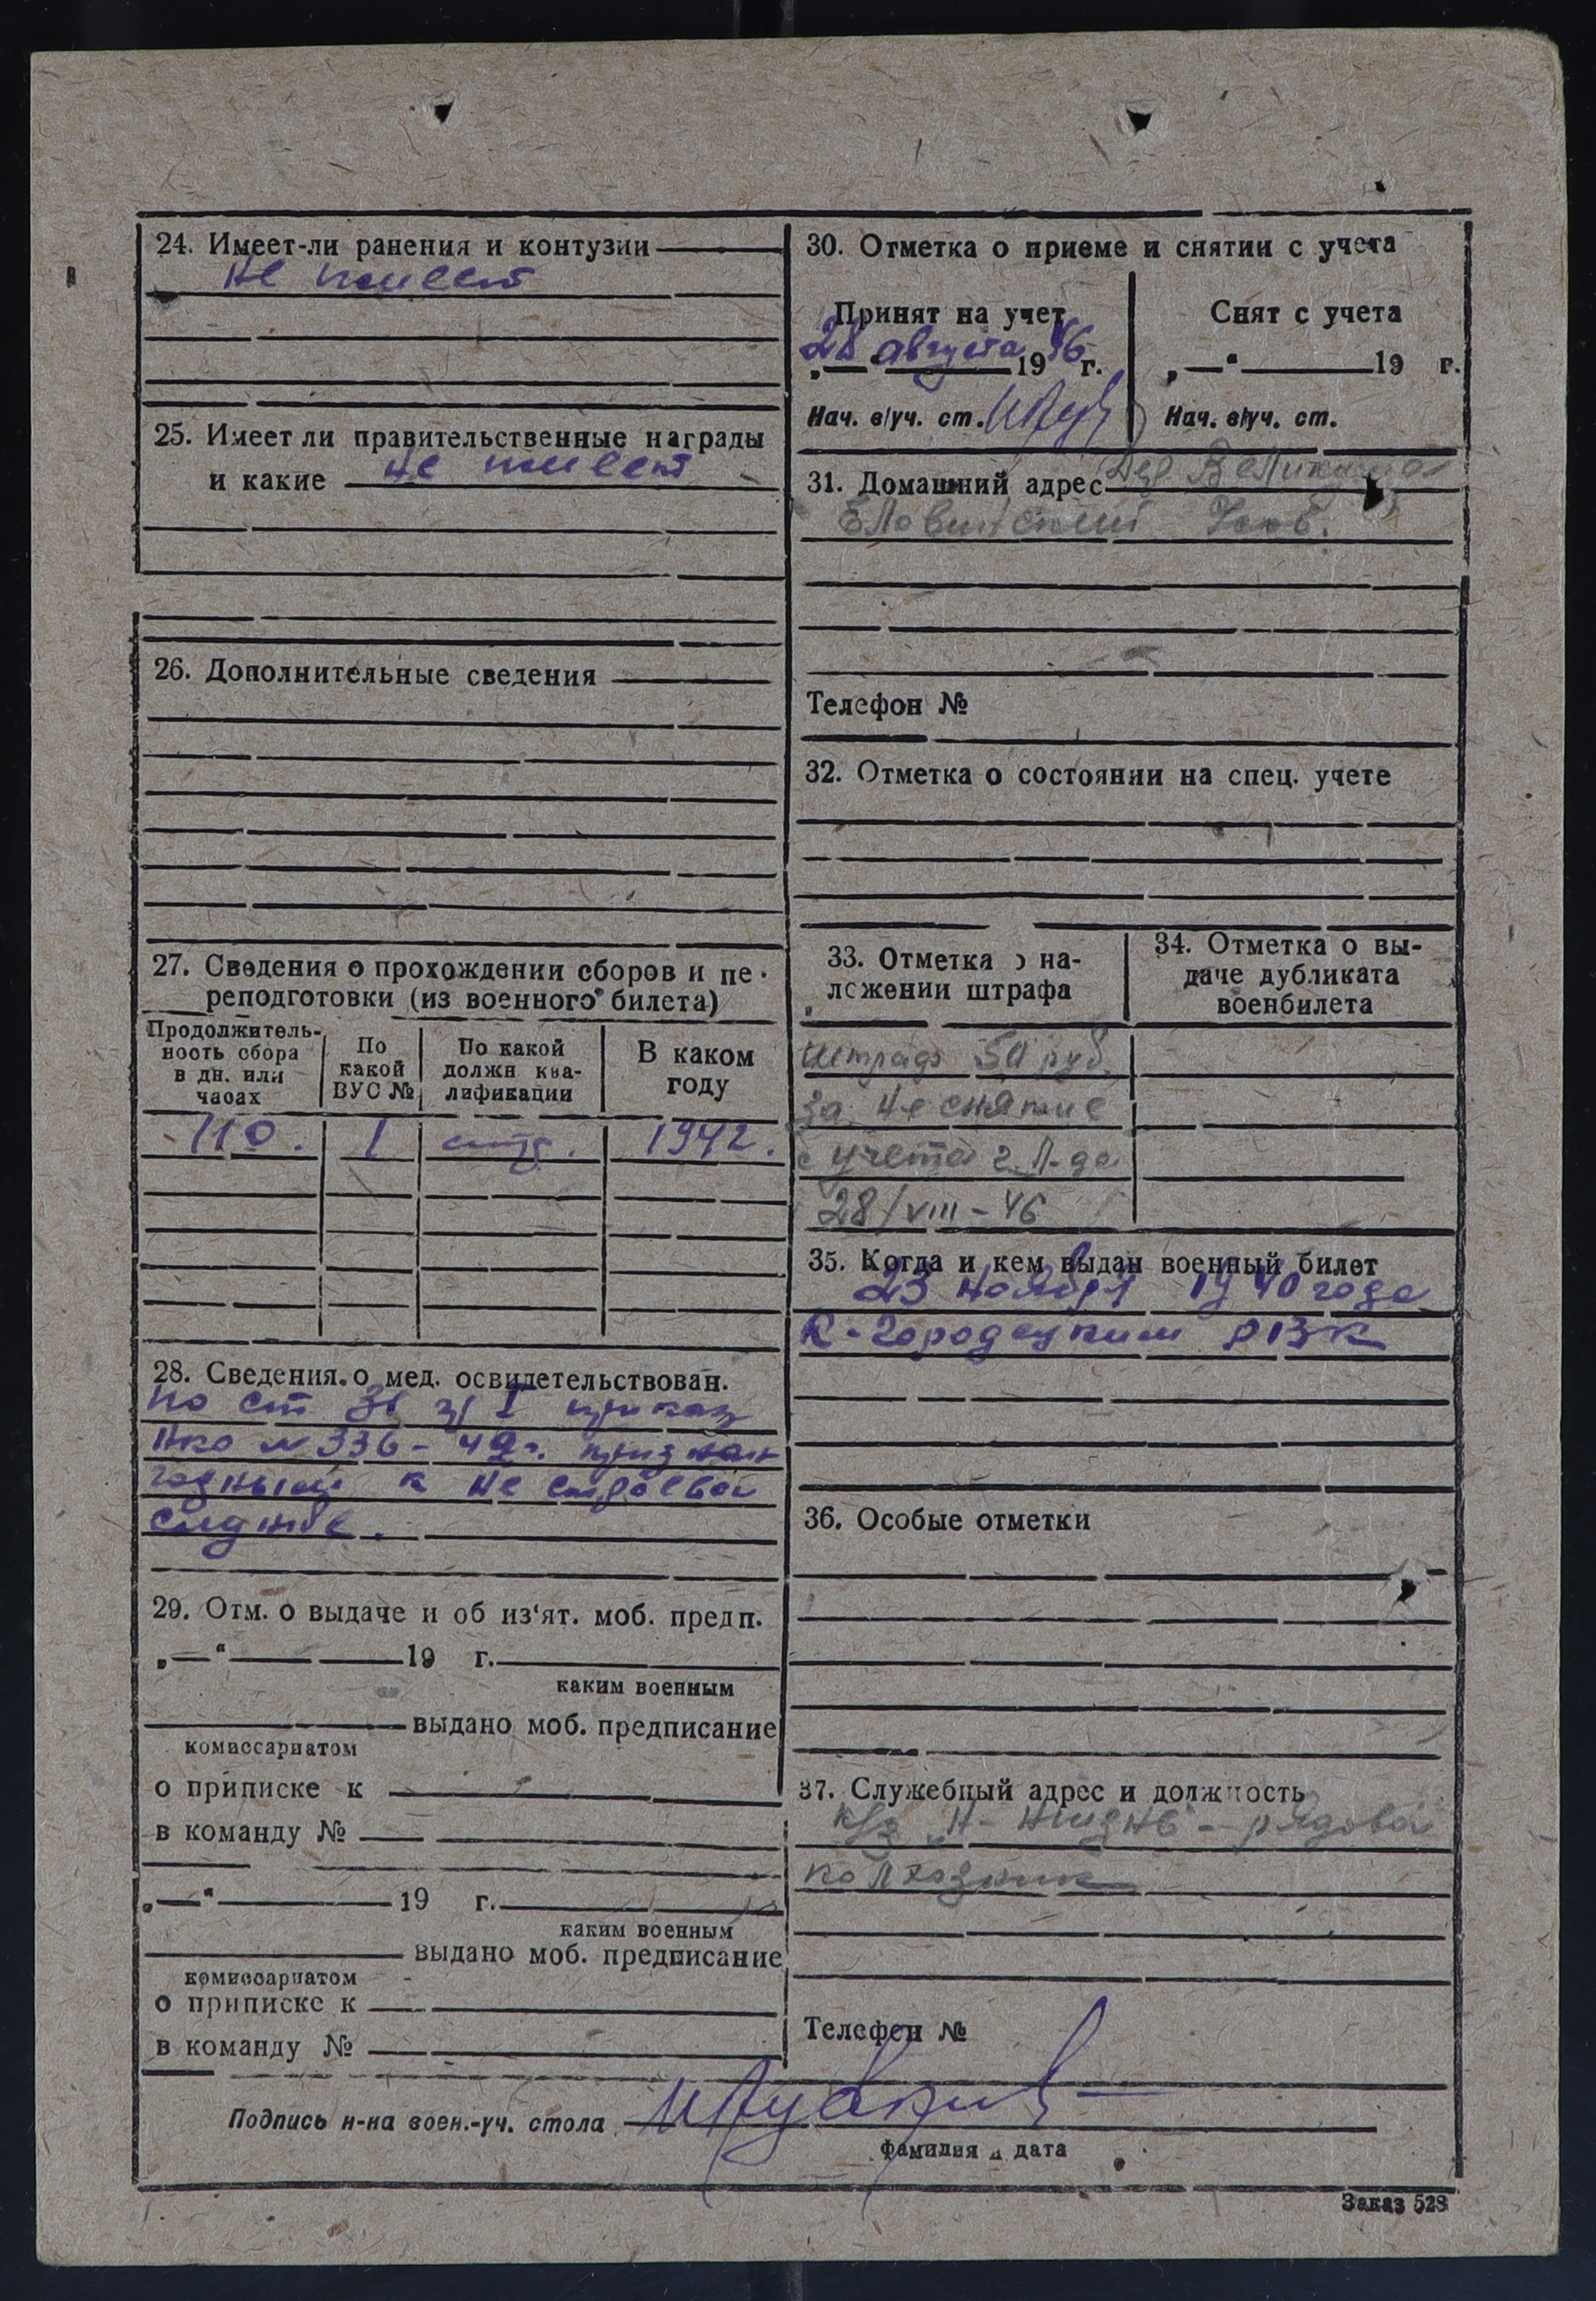 24. Имеет-ли ранения и контузии
не имеет
25. Имеет ли правительственные награды
и какие не имеет
26. Дополнительные сведения
27. Сведения о прохождении сборов и пе-
реподготовки (из военного билета)
Продолжитель-
ность сбора
в дн. или
часах
По
какой
ВУС №
По какой
должн ква-
лификации
В каком
году
110. 1 1942.
28. Сведения о мед. освидетельствован.
по ст 31 I приказ
НКО № 336-42г. признан
годным к не строевой
службе.
29. Отм. о выдаче и об из'ят. моб. предп.
„—“ 19 г.
каким военным
выдано моб. предписание
комиссариатом
о приписке к
в команду №
„—“ 19 г.
каким военным
выдано моб. предписание
комиссариатом
о приписке к
в команду №
30. Отметка о приеме и снятии с учета
Принят на учет
28 августа 1946 г.
Нач. в/уч. ст.
Снят с учета
„—“ 19 г.
Нач. в/уч. ст.
31. Домашний адрес Дер.
Телефон №
32. Отметка о состоянии на спец. учете
33. Отметка о на-
ложении штрафа
штраф 50 руб.
за не снятие
с учета г. Л-да
28/VIII-46
34. Отметка о вы-
даче дубликата
военбилета
35. Когда и кем выдан военный билет
23 ноября 1940 года
К-Городецким РВК
36. Особые отметки
37. Служебный адрес и должность
к/з „Н-жизнь“ - рядовой
колхозник
Телефон №
Подпись н-ка воен.-уч. стола
фамилия и дата
Заказ 528